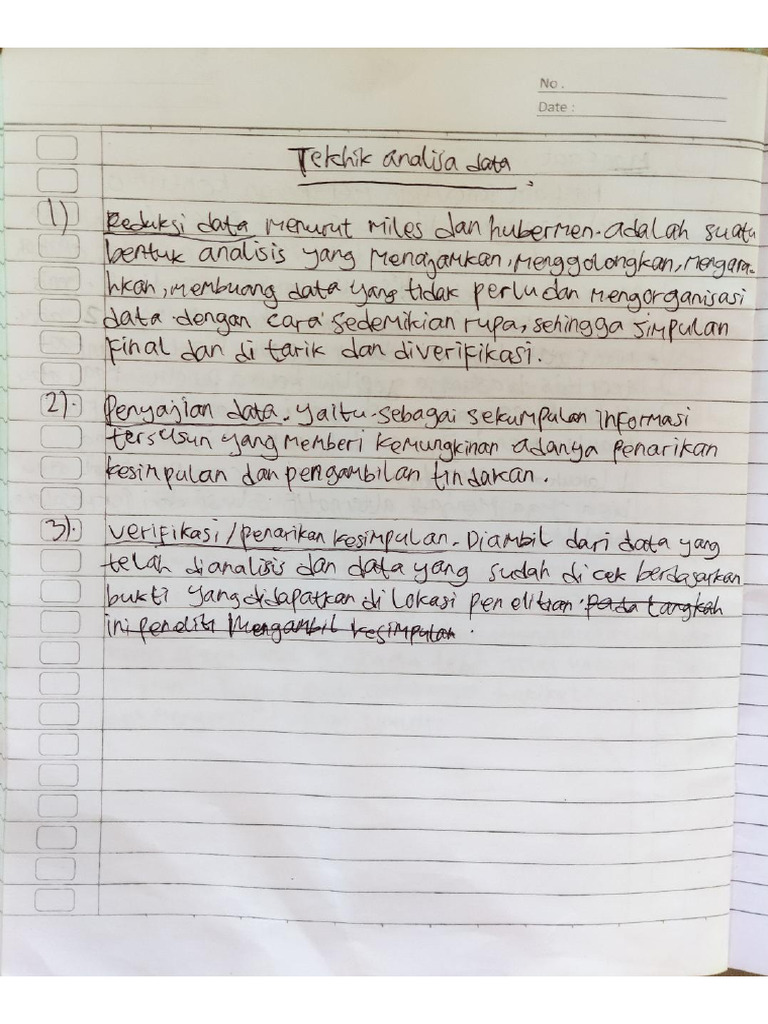 No.
Date :
Teknik analisa data.
1) Reduksi data menurut miles dan hubermen. adalah suatu
bentuk analisis yang menajamkan, menggolongkan, mengara-
hkan, membuang data yang tidak perlu dan mengorganisasi
data. dengan cara sedemikian rupa, sehingga simpulan
final dan di tarik dan diverifikasi.
2). penyajian data. yaitu. sebagai sekumpulan informasi
tersusun yang memberi kemungkinan adanya penarikan
kesimpulan dan pengambilan tindakan.
3). verifikasi/penarikan kesimpulan. Diambil dari data yang
telah dianalisis dan data yang sudah di cek berdasarkan
bukti yang didapatkan di lokasi penelitian. pada tangkah
ini peneliti mengambil kesimpulan.